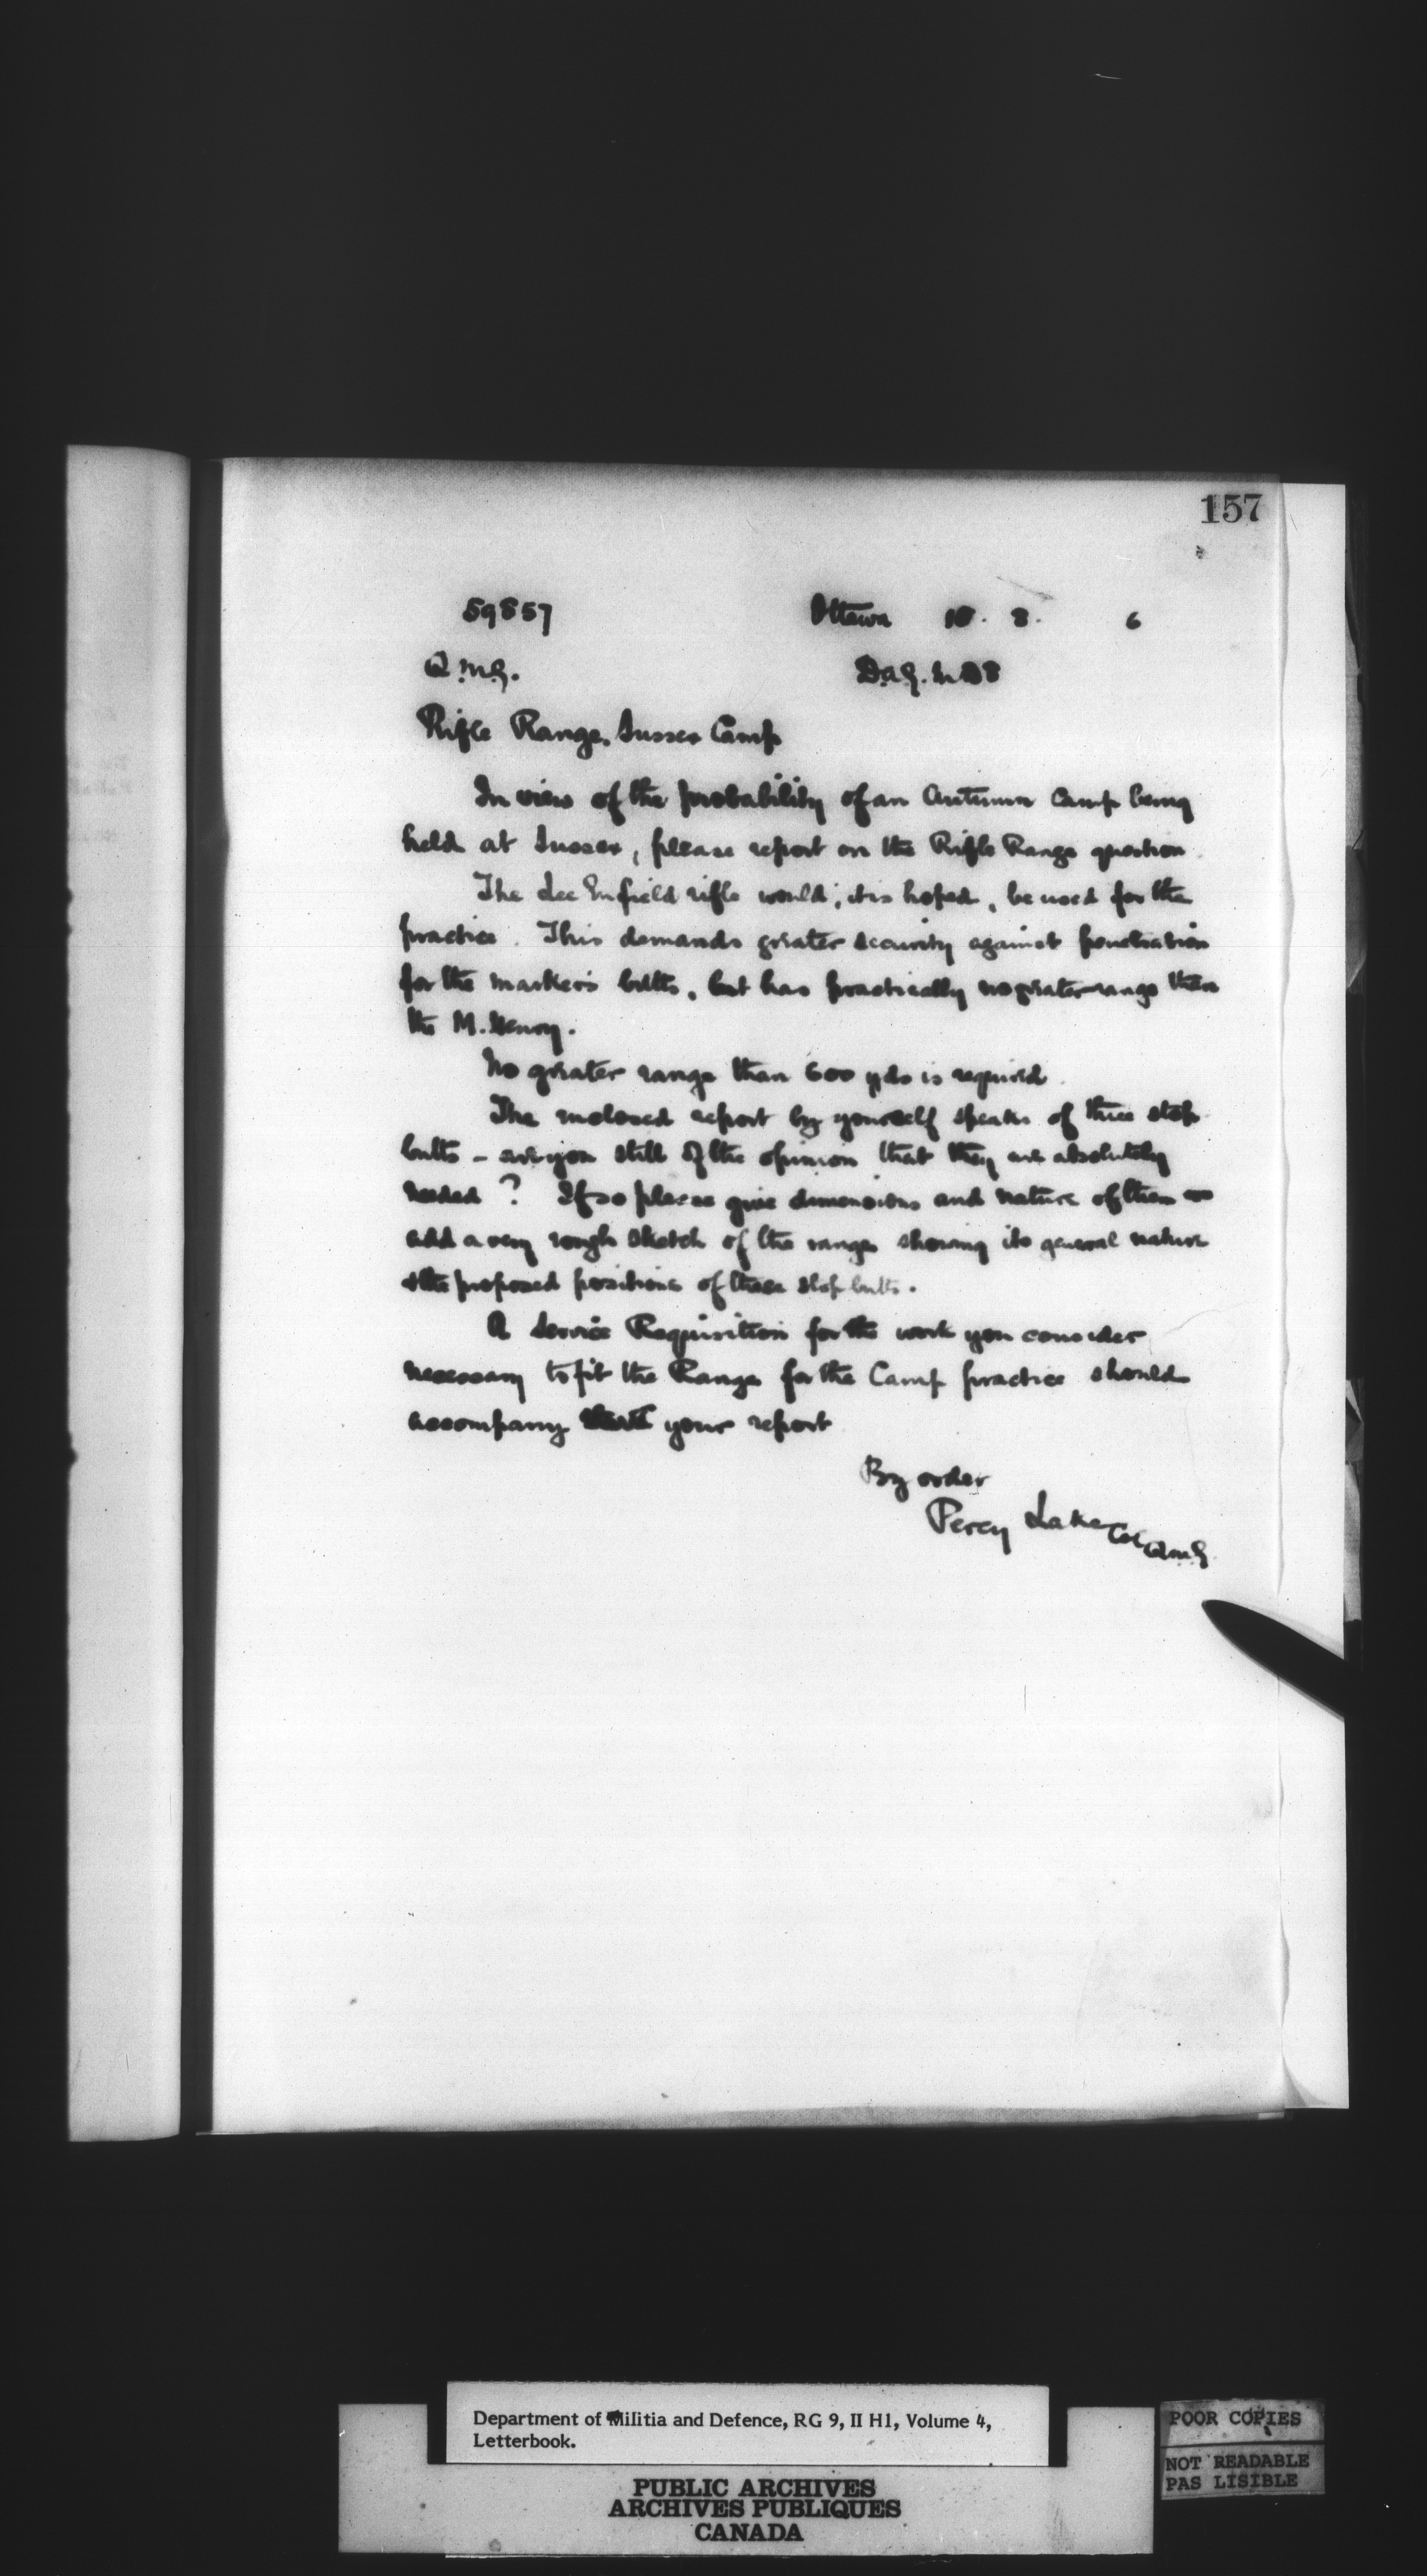 157
59857 Ottawa 10. 8. 6
Q.M.G. D.A.G. M D 8
Rifle Range. Sussex Camp
In view of the probability of an Autumn Camp being
held at Sussex, please report on the Rifle Range question.
The Lee Enfield rifle would, it is hoped, be used for the
practice. This demands greater security against penetration
for the markers butts, but has practically no greater range than
the M. Henry.
No greater range than 600 yds is required.
The inclosed report by yourself speaks of three stop
butts – are you still of the opinion that they are absolutely
needed? If so please give dimensions and nature of them
add a very rough sketch of the range showing its general nature
& the proposed positions of these stop butts.
A Service Requisition for the work you consider
necessary to fit the Range for the Camp practice should
accompany your report
By order
Percy Lake Col
QMG
Department of Militia and Defence, RG 9, II H1, Volume 4,
Letterbook.
PUBLIC ARCHIVES
ARCHIVES PUBLIQUES
CANADA
POOR COPIES
NOT READABLE
PAS LISIBLE